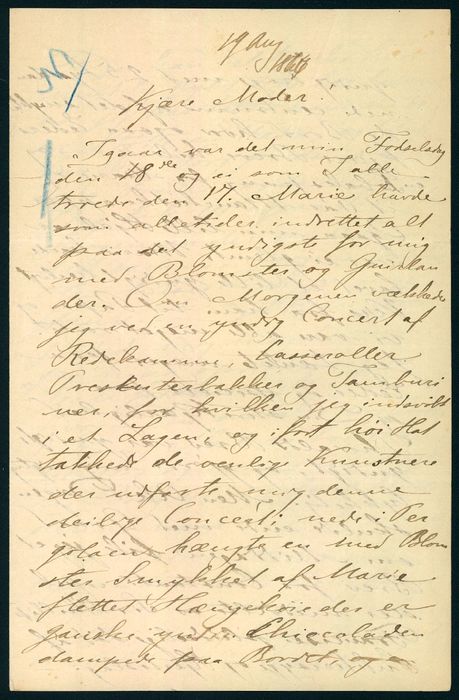 19 Aug
1886
Kjære Moder.
Igaar var det min Fødselsdag
den 18de og ei som I alle
troede den 17. Marie havde
som alletider indrettet alt
paa det yndigste for mig
med Blomster og Guirlan
der. Om Morgenen vækkedes
jeg ved en yndig Concert af
Redekamme, Casseroller
Presenterbakker og Tamburi
ner, for hvilken jeg indsvøbt
i et Lagen, og i høi Hat
takkede de venlige Kunstnere
der udførte mig denne
deilige Concert; nede i Per
golaen hængte en med Blom
ster Smykket af Marie
flettet Hængekøie der er
ganske yndig. Chiccoladen
dampede paa Bordet og